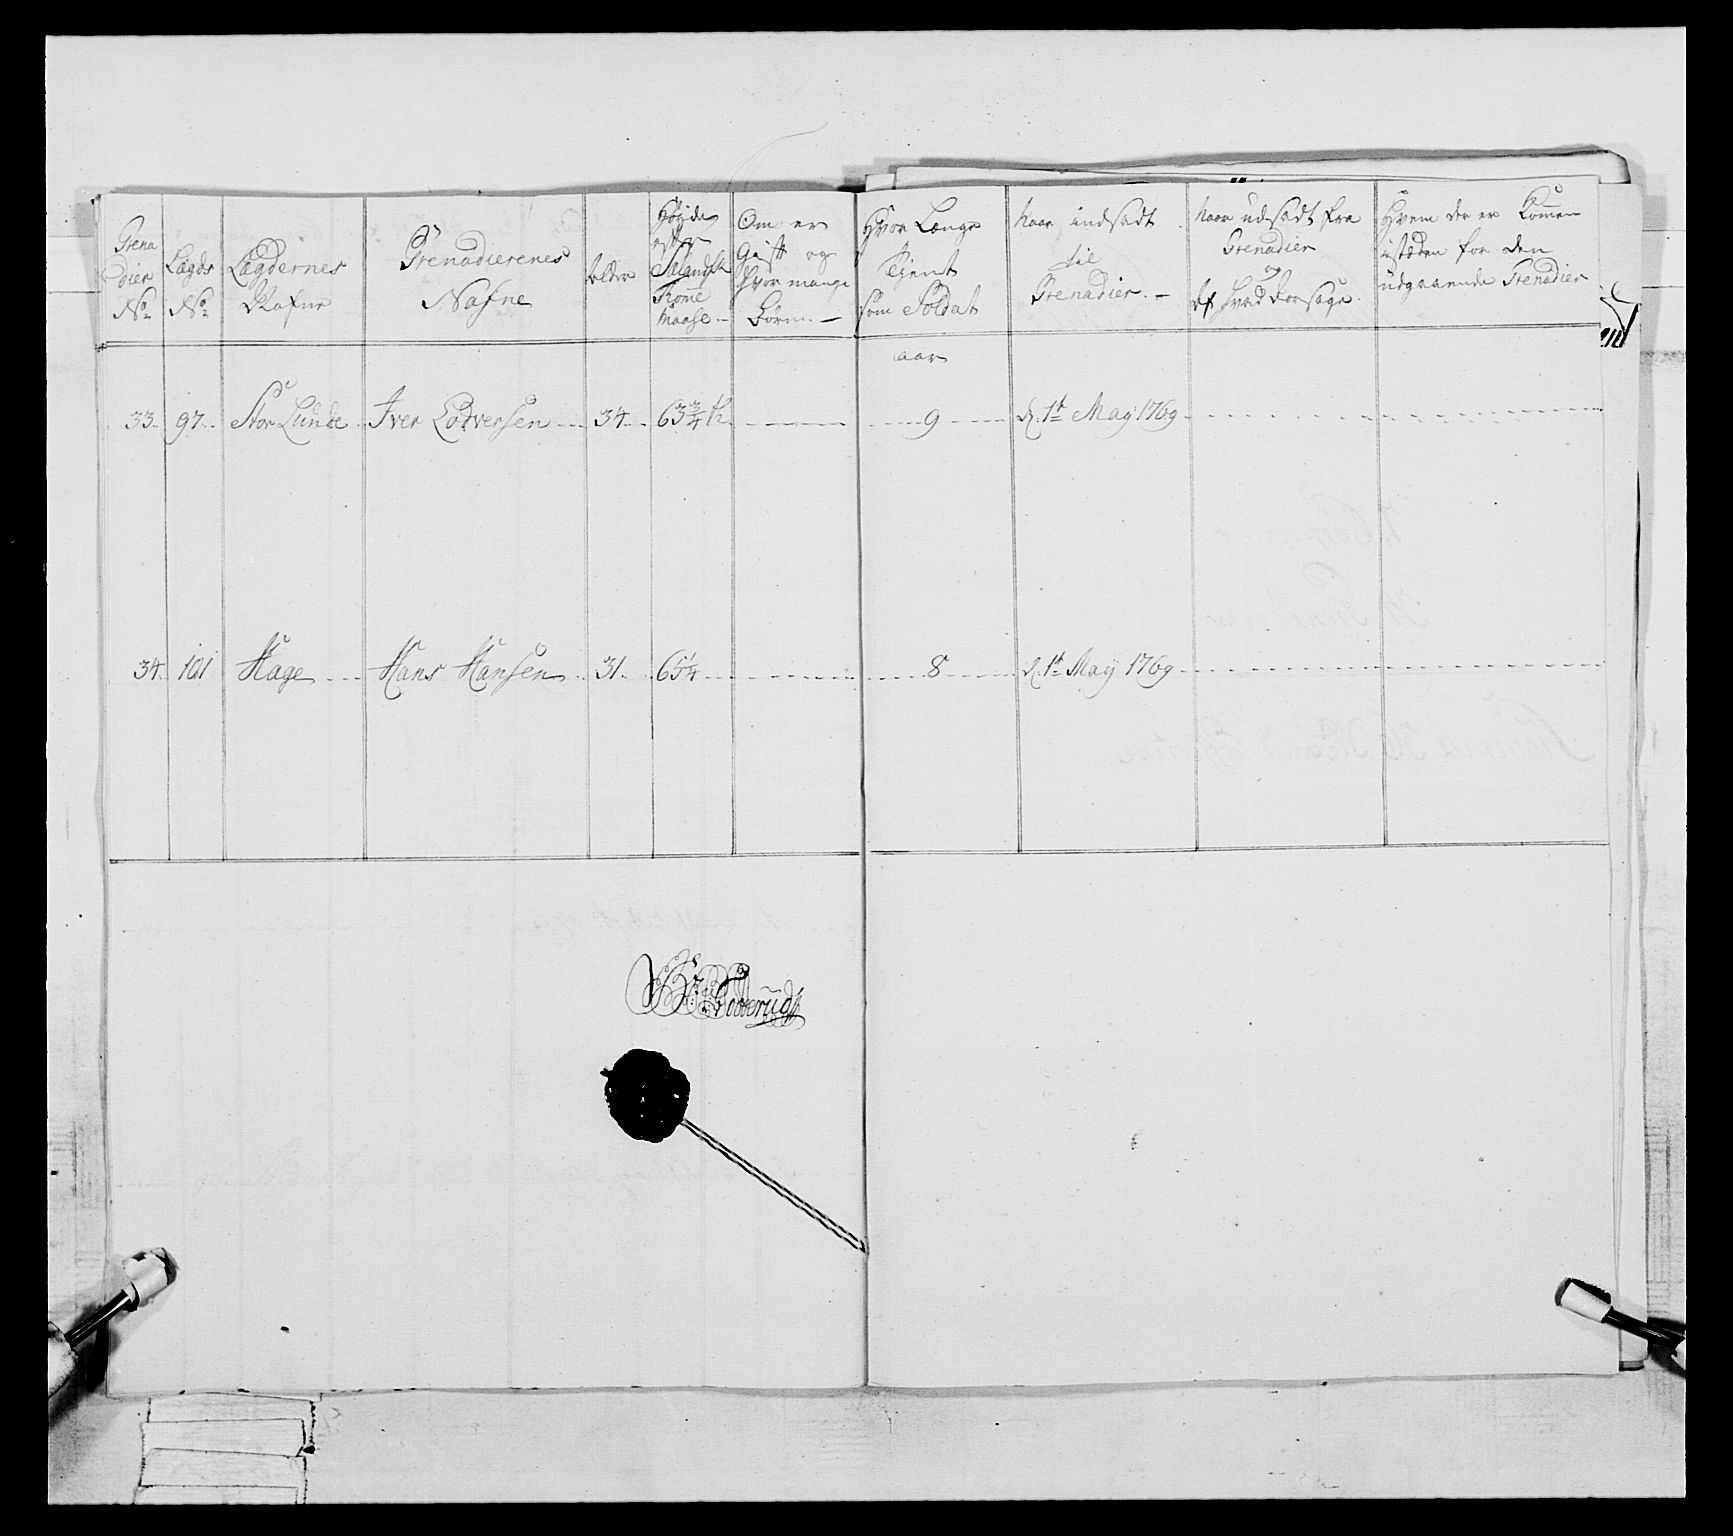 Grena
dier
No
Lægds
No
Lægdernes
Nafne
Grenadierenes
Nafne
Alder
Høyde
efter
Siælandsk
Tomme
Maase. –
Om er
Gift og
hvor mange
Børn. –
Hvor Længe
Tient
som Soldat
Naar indsadt
til
Grenadier. –
Naar udsadt fra
Grenadier
og
Af hvad Aarsage.
Hvem der er Komen
istæden for den
udgaaende Grenadier
aar
33. 97. Stor Lunde. Iver Lodversen 34. 63 3/4 th 9 d. 1t May 1769
34. 101 Hage Hans Hansen 31. 65 1/4 8 d. 1t May 1769